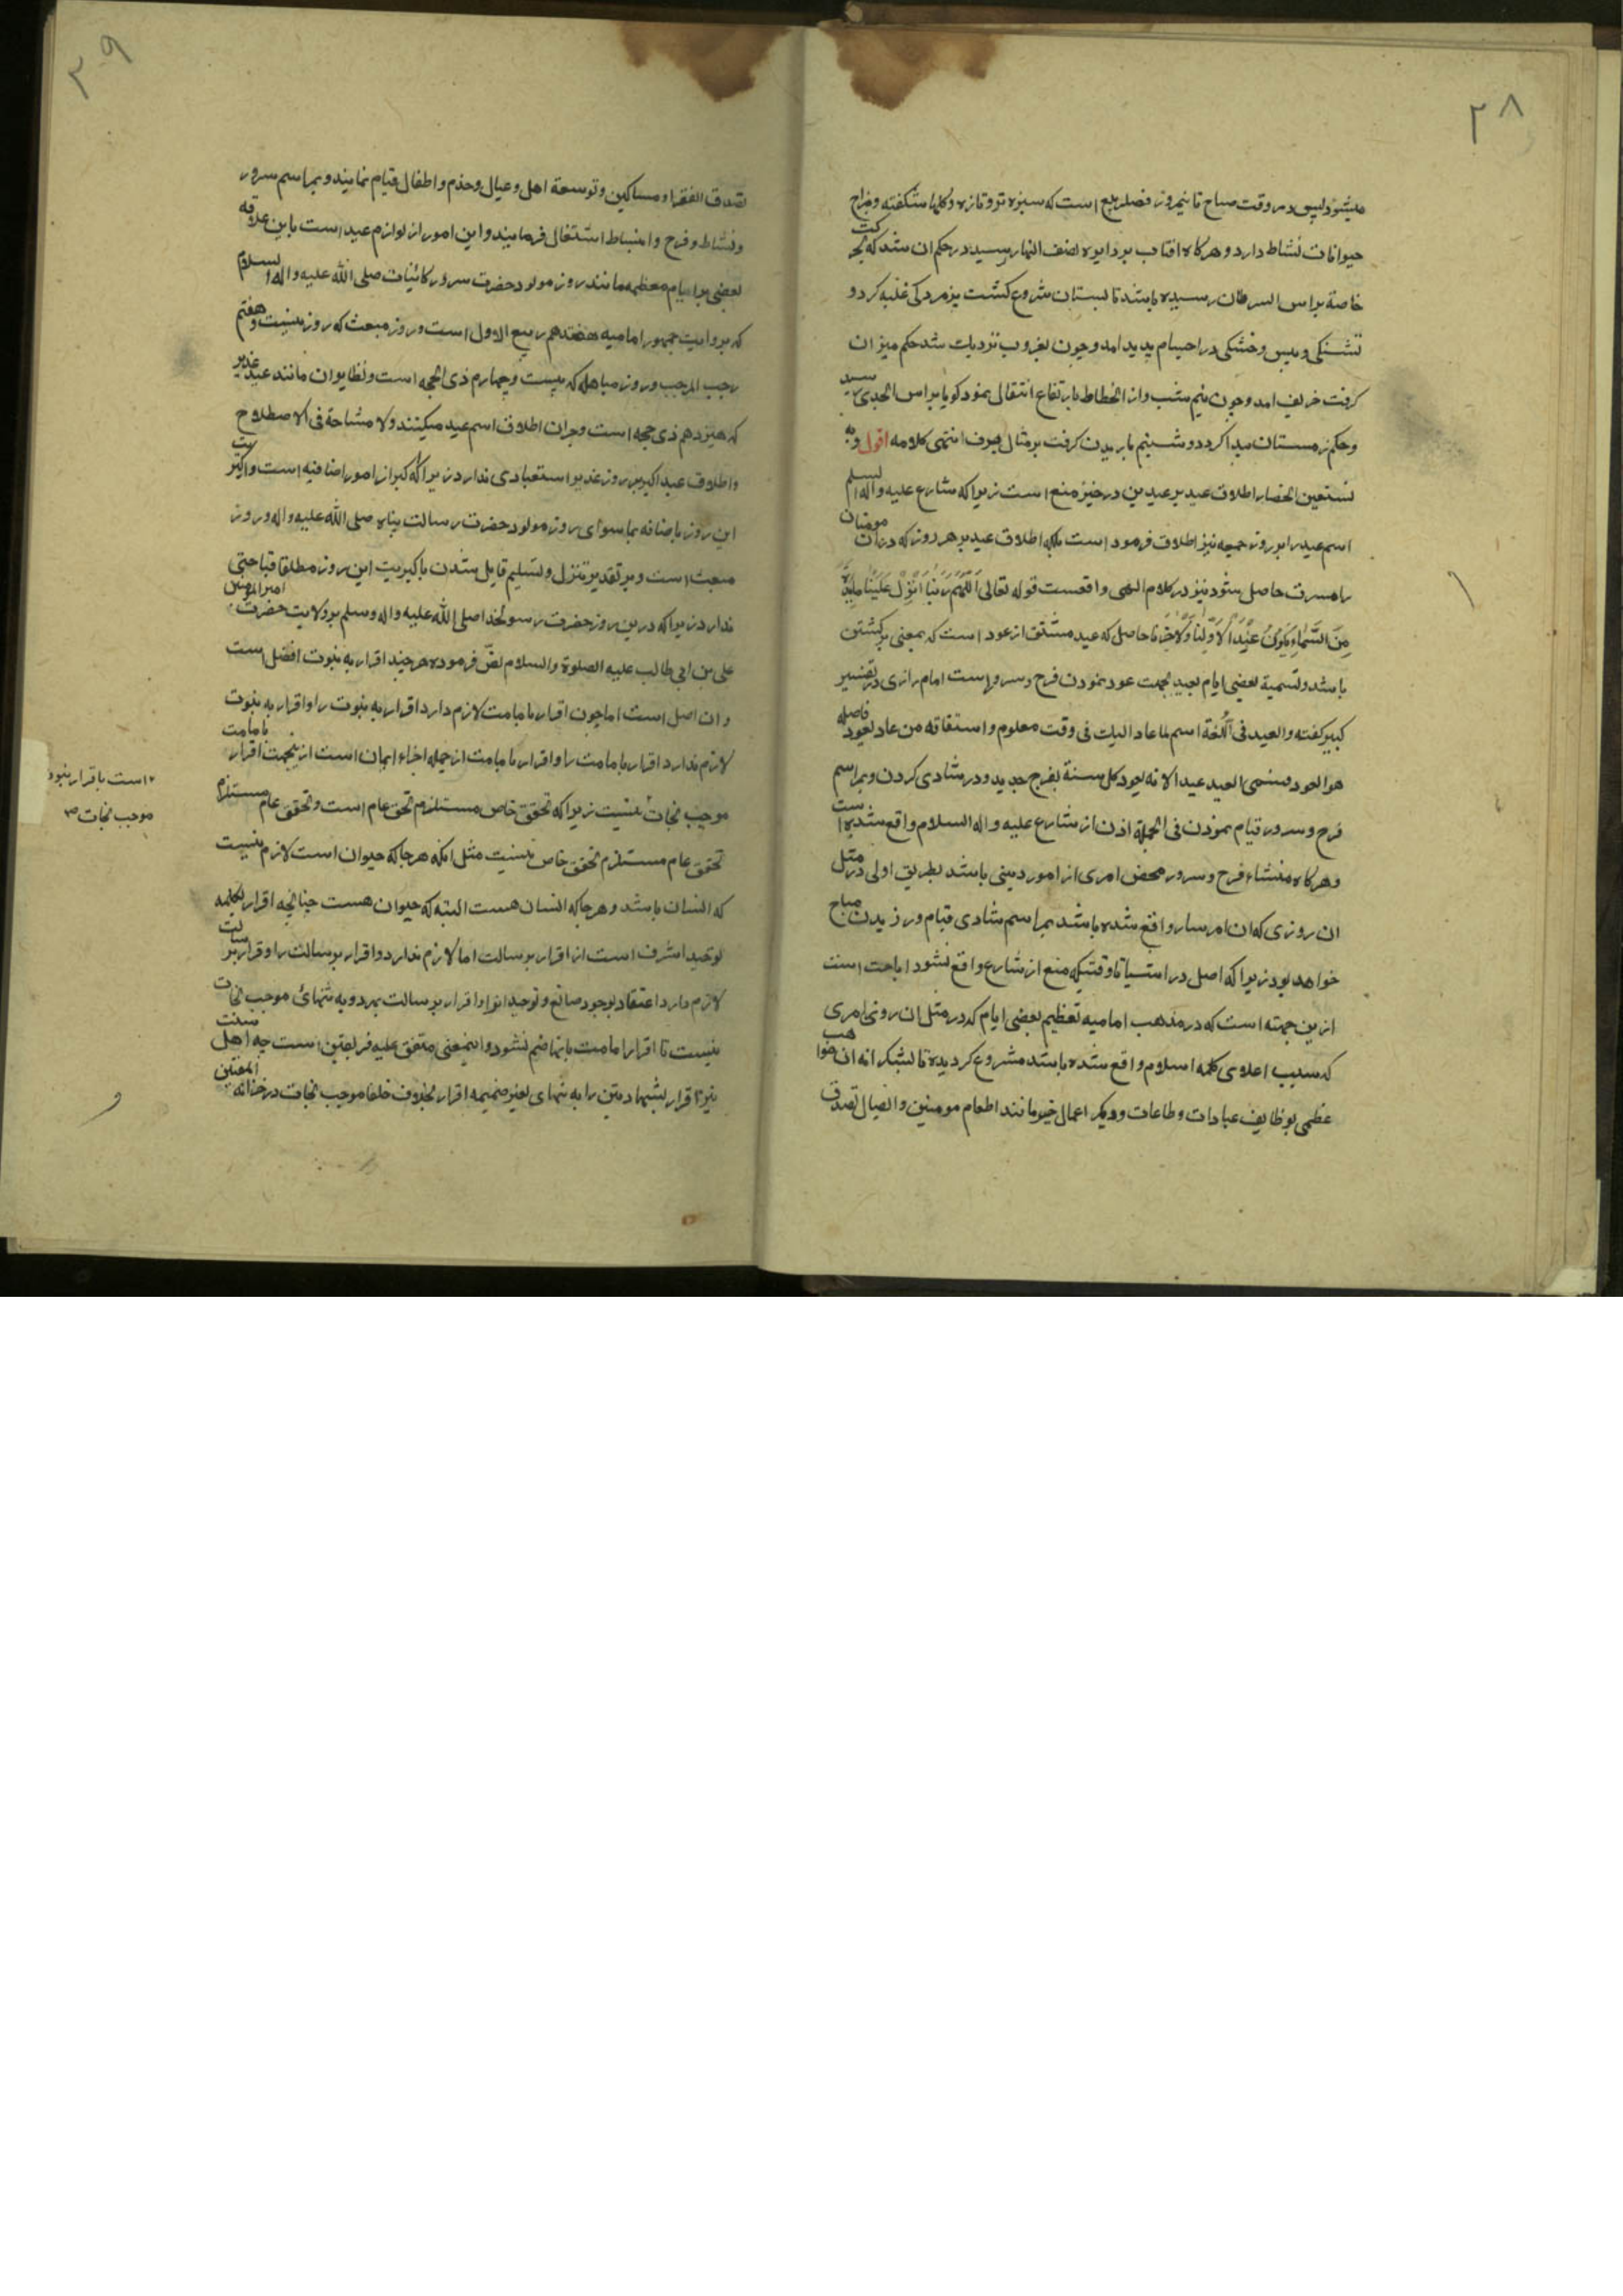 ۲۸
میشود پس در وقت صباح تا نیمروز فصل ربیع است که سبزه تر و تازه و گلها شکفته و مزاج
حیوانات نشاط دارد و هرکاه افتاب بر دایره نصف النهار رسید در حکم ان شد که بحرکت
خاصه براس السرطان رسیده باشد تابستان شروع کشت پژمردکی غلبه کرد و
تشنکی و یبس و خشکی در اجسام پدید امد و چون بغروب نزدیک شد حکم میزان
کرفت خریف امد و چون نیم شب و از انحطاط بارتفاع انتقال نمود کویا براس الجدی رسید
و حکم زمستان پیدا کردد و شبنم باریدن کرفت بر مثال برف انتهی کلامه اقول وبه
نستعین انحصار اطلاق عید بر عیدین در حیز منع است زیرا که شارع علیه واله السلم
اسم عید را بر روز جمعه نیز اطلاق فرمود است بلکه اطلاق عید بر هر روز که در ان مومنان
را مسرت حاصل شود نیز در کلام الهی واقعست قوله تعالی اَللّهُمَّ رَبَّنا اَنْزِلْ عَلَیْنا مائِدَةً
مِنَ السَّماءِ یَکُونُ عِیْداً لاَوَّلِنا وَ لاخِرِنا حاصل که عید مشتق از عود است که بمعنی برکشتن
باشد و تسمیة بعضی ایام بعید بجهت عود نمودن فرح و سرور است امام رازی در تفسیر
کبیر کفته والعید فی اللغة اسم لما عاد الیک فی وقت معلوم و اشتقاقه من عاد یعود فاصله
هو العود فسمی العید عیدا لانه یعود کل سنة بفرح جدید و در شادی کردن و بمراسم
فرح و سرور قیام نمودن فی الجمله اذن از شارع علیه و اله السلام واقع شده است
و هرکاه منشاء فرح و سرور محض امری از امور دینی باشد بطریق اولی در مثل
ان روزی که ان امر سار واقع شده باشد بمراسم شادی قیام ورزیدن مباح
خواهد بود زیرا که اصل در اشیا تا وقتیکه منع از شارع واقع نشود اباحت است
ازین جهته است که در مذهب امامیه تعظیم بعضی ایام که در مثل ان روز امری
که سبب اعلای کلمه اسلام واقع شده باشد مشروع کردیده تا بشکرانه ان مواهب
عظمی بوظایف عبادات و طاعات و دیکر اعمال خیر مانند اطعام مومنین و ایصال تصدق
۲۹
تصدق الفقراء و مساکین و توسعة اهل و عیال و خدم و اطفال قیام نمایند و بمراسم سرور
و نشاط و فرح و انبساط اشتغال فرمایند و این امور از لوازم عید است باین علاقه
بعضی را ایام معظمه مانند روز مولود حضرت سرور کائنات صلی الله علیه و اله السلام
که بروایت جمهور امامیه هفدهم ربیع الاول است و روز مبعث که روز بیست و هفتم
رجب المرجب و روز مباهله که بیست و چهارم ذی الحجه است و نظایر ان مانند عید غدیر
که هیزدهم ذی حجه است و جران اطلاق اسم عید میکنند و لا مشاحة فی الاصطلاح
و اطلاق عید اکبر بر روز غدیر استبعادی ندارد زیرا که اکبر از امور اضافیه است و اکبریت
این روز باضافه بماسوای روز مولود حضرت رسالت پناه صلی الله علیه و اله و روز
مبعث است و بر تقدیر تنزل و تسلیم قایل شدن باکبریت این روز مطلقا قباحتی
ندارد زیرا که درین روز حضرت رسولخدا صلی الله علیه و اله و سلم بر ولایت حضرت امیر المومنین
علی بن ابی طالب علیه الصلوة و السلام نص فرموده هر چند اقرار به نبوت افضل است
و ان اصل است اما چون اقرار بامامت لازم دارد اقرار به نبوت را و اقرار به نبوت
لازم ندارد اقرار بامامت را و اقرار بامامت از جمله اجزاء ایمان است ازینجهت اقرار بامامت
موجب نجات نیست زیرا که تحقق خاص مستلزم تحقق عام است و تحقق عام مستلزم
تحقق خاص نیست مثل انکه هرجا که حیوان است لازم نیست
که انسان باشد و هرجا که انسان هست البته که حیوان هست چنانچه اقرار بکلمه
توحید اشرف است از اقرار برسالت اما لازم ندارد اقرار برسالت را و اقرار برسالت
لازم دارد اعتقاد بوجود صانع و توحید انرا و اقرار برسالت بمرد و به تنهائ موجب نجات
نیست تا اقرار امامت بانها ضم نشود و اینمعنی متفق علیه فریقین است چه اهل سنت
نیز اقرار بشهادتین را به تنهای بغیر ضمیمه اقرار بخلاف خلفا موجب نجات در خزانه المفتین
است باقرار نبوت
موجب نجات ص